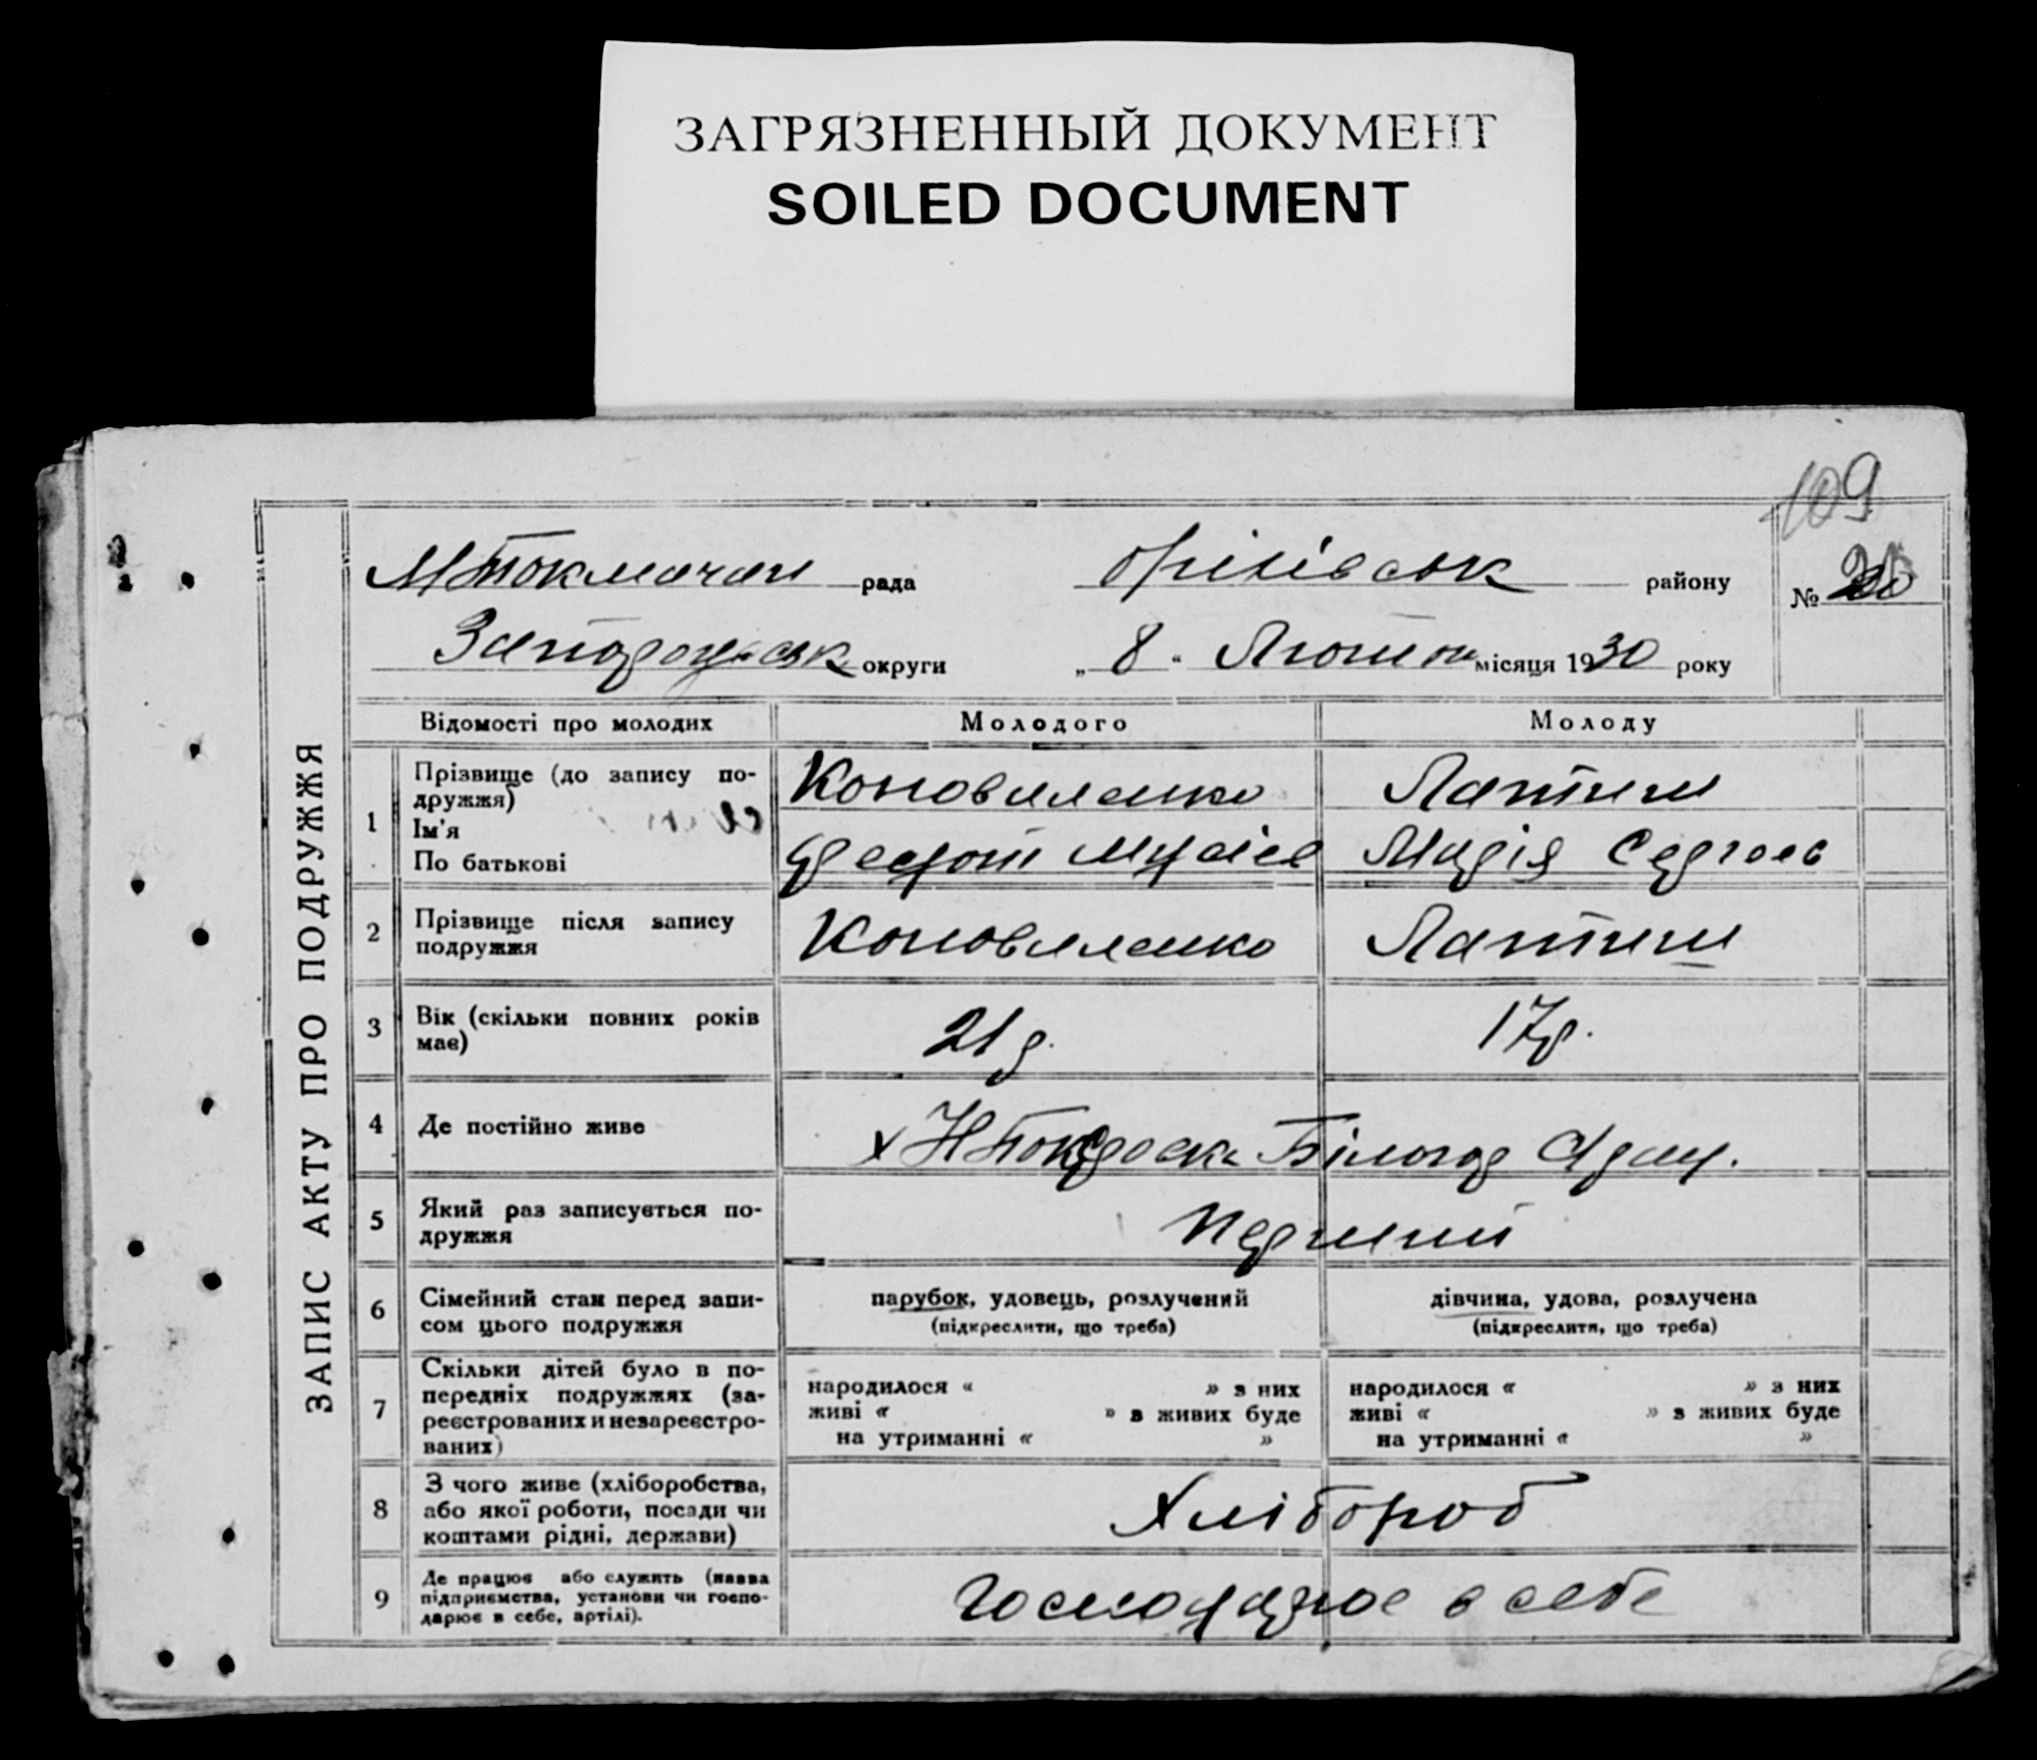 ЗАГРЯЗНЕННЫЙ ДОКУМЕНТ
SOILED DOCUMENT
109
ЗАПИС АКТУ ПРО ПОДРУЖЖЯ
МТокмачан рада Оріхівськ району
№
Запорожськ округи „ 8 “ Лютого місяця 1930 року
Відомості про молодих Молодого Молоду
1 Прізвище (до запису по-
дружжя)
Ім'я
По батькові
Коноваленко Лаптиш
Федот Мусієв Марія Сергоєв
2 Прізвище після запису
подружжя
Коноваленко Лаптиш
3 Вік (скільки повних років
має)
21 р. 17 р.
4 Де постійно живе
х Білогор
5 Який раз записується по-
дружжя
Перший
6 Сімейний стан перед запи-
сом цього подружжя
парубок, удовець, розлучений
(підкреслити, що треба)
дівчина, удова, розлучена
(підкреслити, що треба)
7 Скільки дітей було в по-
передніх подружжях (за-
реєстрованих и незареєстро-
ваних)
народилося « » з них
живі « » в живих буде
на утриманні « »
народилося « » з них
живі « » в живих буде
на утриманні « »
8 З чого живе (хліборобства,
або якої роботи, посади чи
коштами рідні, держави)
Хлібороб
9 Де працює або служить (назва
підприємства, установи чи госпо-
дарює в себе, артілі).
Господарює в себе